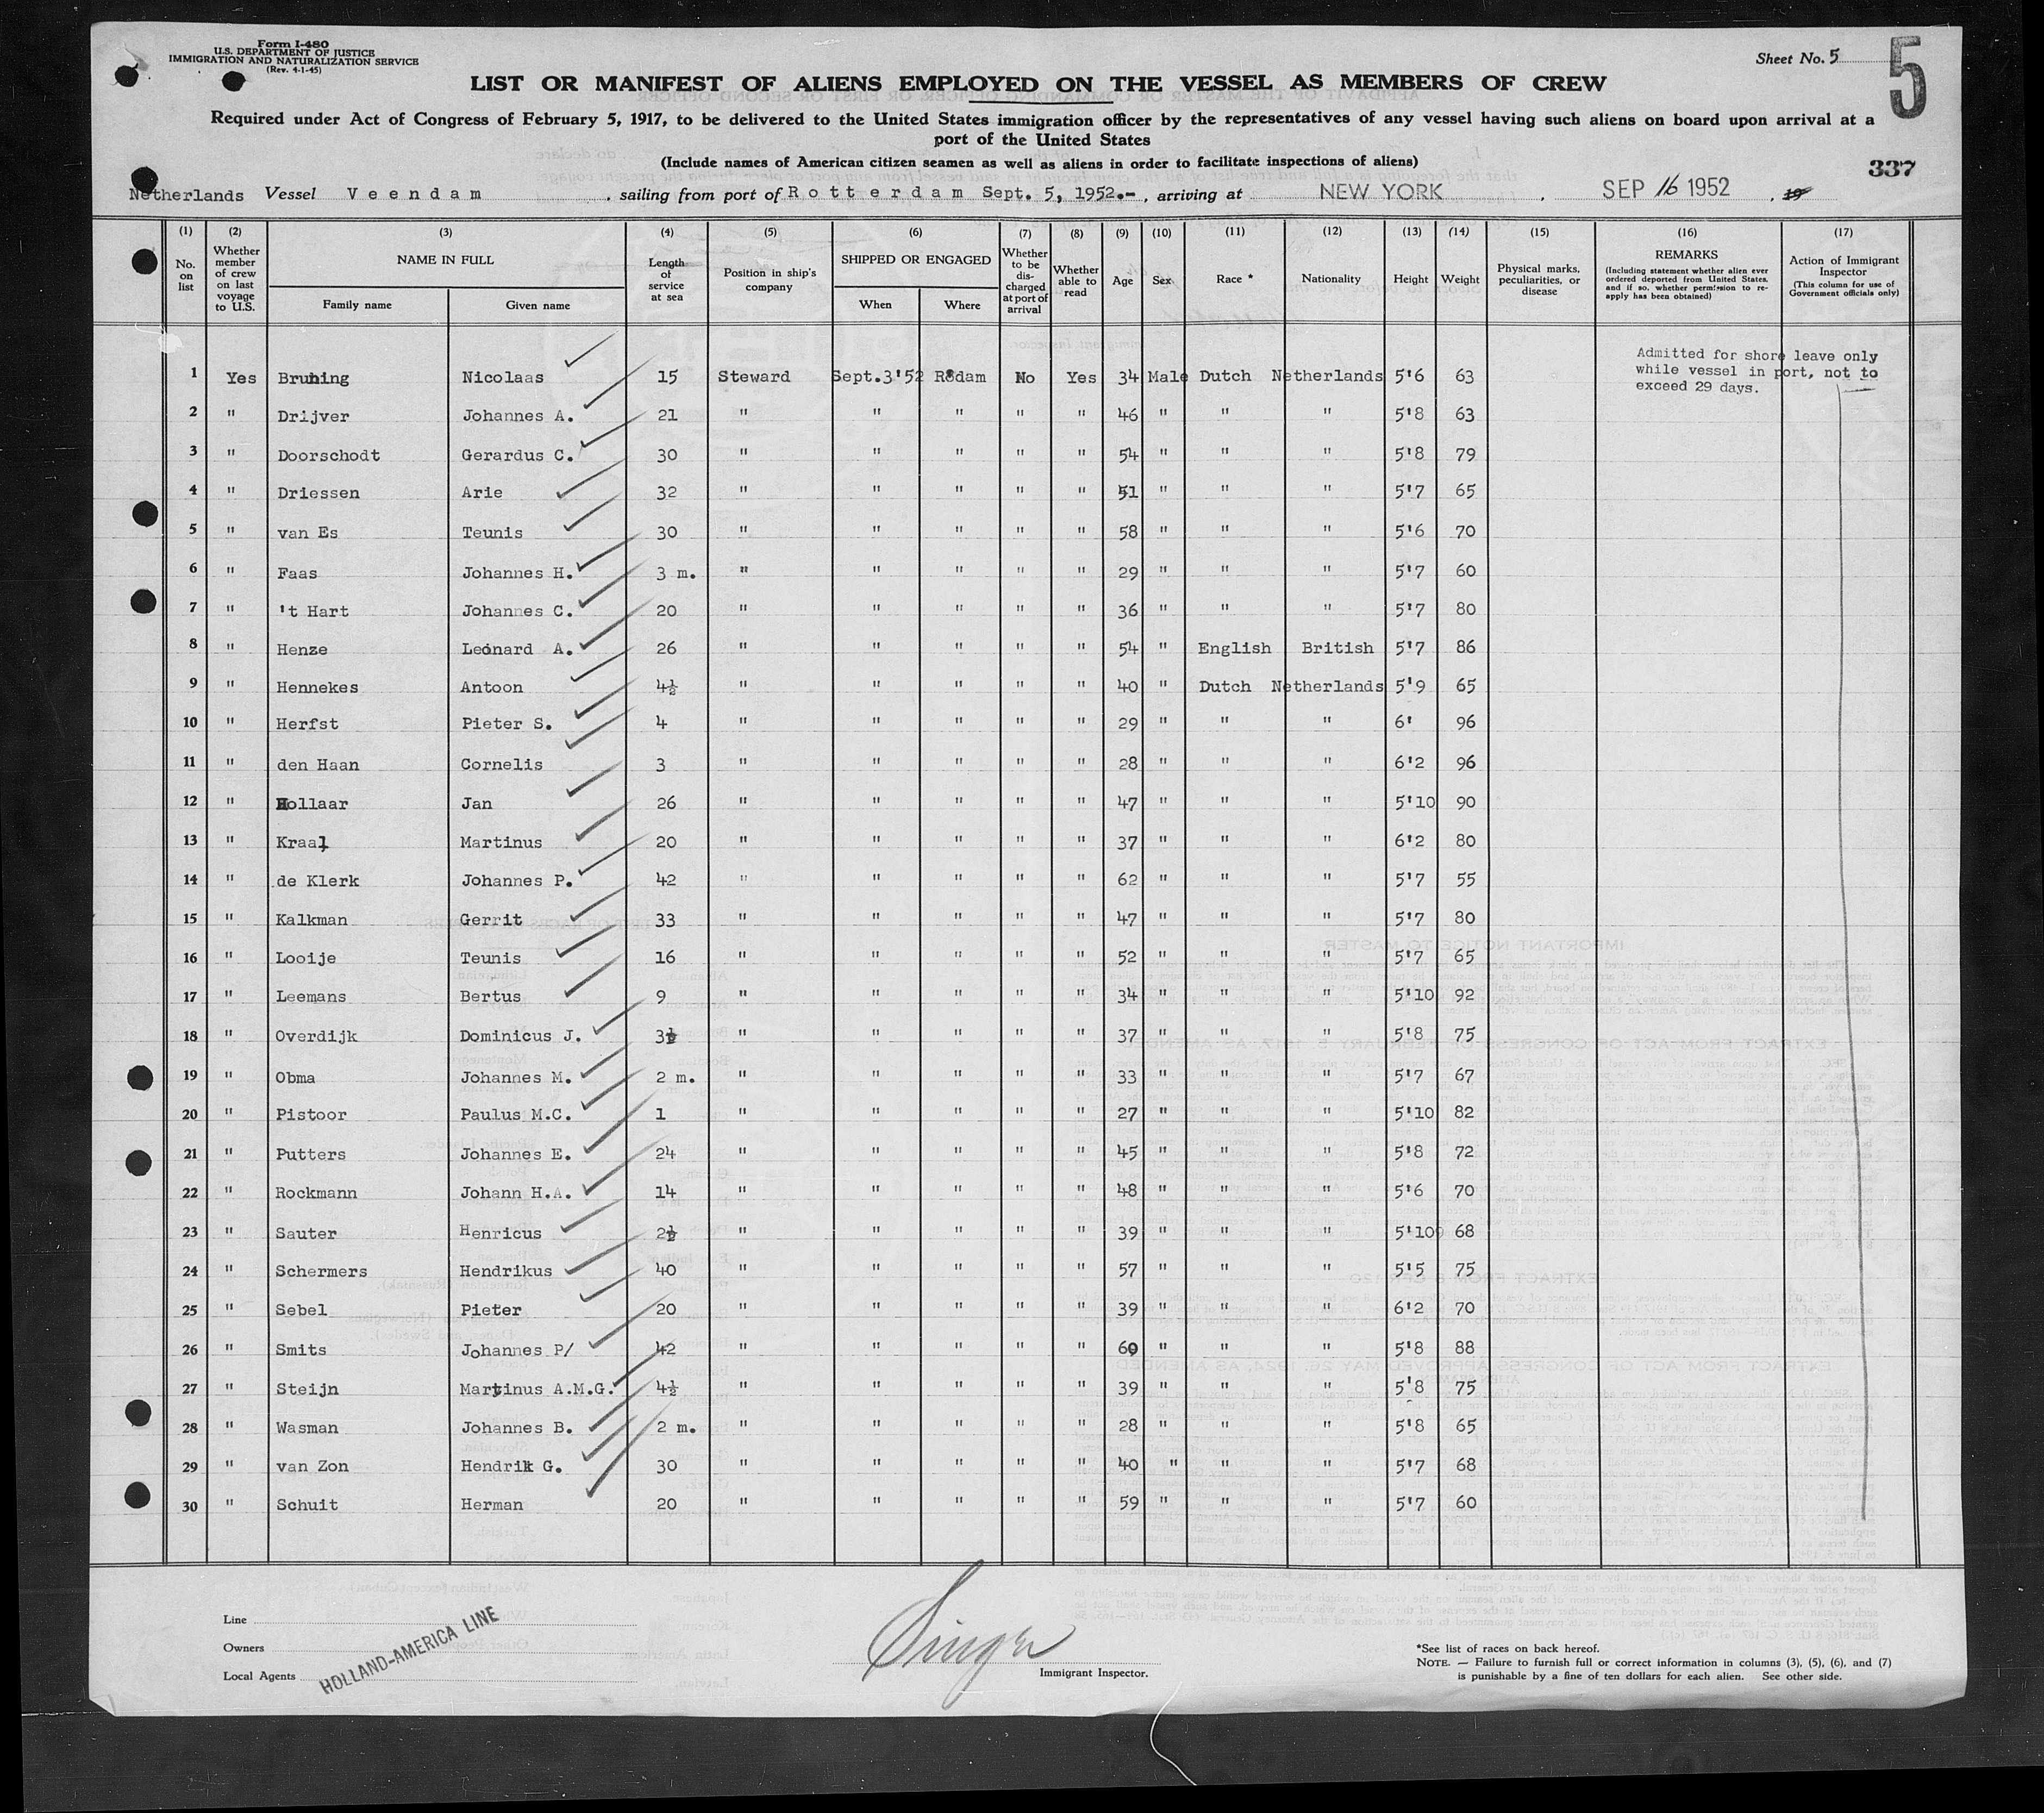 Form I-480
U.S. DEPARTMENT OF JUSTICE
IMMIGRATION AND NATURALIZATION SERVICE
(Rev. 4-1-45)
Sheet No. 5
5
LIST OR MANIFEST OF ALIENS EMPLOYED ON THE VESSEL AS MEMBERS OF CREW
Required under Act of Congress of February 5, 1917, to be delivered to the United States immigration officer by the representatives of any vessel having such aliens on board upon arrival at a
port of the United States
(Include names of American citizen seamen as well as aliens in order to facilitate inspections of aliens)
337
Netherlands Vessel Veendam, sailing from port of Rotterdam Sept. 5, 1952.-, arriving at NEW YORK, SEP 16 1952, 19
(1) No. on list (2) Whether member of crew on last voyage to U.S. (3) NAME IN FULL Family name Given name (4) Length of service at sea (5) Position in ship's company (6) SHIPPED OR ENGAGED When Where (7) Whether to be discharged at port of arrival (8) Whether able to read (9) Age (10) Sex (11) Race * (12) Nationality (13) Height (14) Weight (15) Physical marks, peculiarities, or disease (16) REMARKS (Including statement whether alien ever ordered deported from United States, and if so, whether permission to re-apply has been obtained) (17) Action of Immigrant Inspector (This column for use of Government officials only)
Admitted for shore leave only
while vessel in port, not to
exceed 29 days.
1 Yes Bruning Nicolaas 15 Steward Sept.3'52 R'dam No Yes 34 Male Dutch Netherlands 5'6 63
2 " Drijver Johannes A. 21 " " " " " 46 " " " 5'8 63
3 " Doorschodt Gerardus C. 30 " " " " " 54 " " " 5'8 79
4 " Driessen Arie 32 " " " " " 51 " " " 5'7 65
5 " van Es Teunis 30 " " " " " 58 " " " 5'6 70
6 " Faas Johannes H. 3 m. " " " " " 29 " " " 5'7 60
7 " 't Hart Johannes C. 20 " " " " " 36 " " " 5'7 80
8 " Henze Leonard A. 26 " " " " " 54 " English British 5'7 86
9 " Hennekes Antoon 4½ " " " " " 40 " Dutch Netherlands 5'9 65
10 " Herfst Pieter S. 4 " " " " " 29 " " " 6' 96
11 " den Haan Cornelis 3 " " " " " 28 " " " 6'2 96
12 " Hollaar Jan 26 " " " " " 47 " " " 5'10 90
13 " Kraal Martinus 20 " " " " " 37 " " " 6'2 80
14 " de Klerk Johannes P. 42 " " " " " 62 " " " 5'7 55
15 " Kalkman Gerrit 33 " " " " " 47 " " " 5'7 80
16 " Looije Teunis 16 " " " " " 52 " " " 5'7 65
17 " Leemans Bertus 9 " " " " " 34 " " " 5'10 92
18 " Overdijk Dominicus J. 3½ " " " " " 37 " " " 5'8 75
19 " Obma Johannes M. 2 m. " " " " " 33 " " " 5'7 67
20 " Pistoor Paulus M.C. 1 " " " " " 27 " " " 5'10 82
21 " Putters Johannes E. 24 " " " " " 45 " " " 5'8 72
22 " Rockmann Johann H.A. 14 " " " " " 48 " " " 5'6 70
23 " Sauter Henricus 2½ " " " " " 39 " " " 5'10 68
24 " Schermers Hendrikus 40 " " " " " 57 " " " 5'5 75
25 " Sebel Pieter 20 " " " " " 39 " " " 6'2 70
26 " Smits Johannes P/ 42 " " " " " 60 " " " 5'8 88
27 " Steijn Martinus A.M.G. 4½ " " " " " 39 " " " 5'8 75
28 " Wasman Johannes B. 2 m. " " " " " 28 " " " 5'8 65
29 " van Zon Hendrik G. 30 " " " " " 40 " " " 5'7 68
30 " Schuit Herman 20 " " " " " 59 " " " 5'7 60
Line
Owners
Local Agents
HOLLAND-AMERICA LINE
Singer
Immigrant Inspector.
*See list of races on back hereof.
NOTE. — Failure to furnish full or correct information in columns (3), (5), (6), and (7)
is punishable by a fine of ten dollars for each alien. See other side.